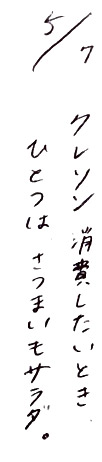 5/7
クレソン 消費したいとき
ひとつは さつまいもサラダ。